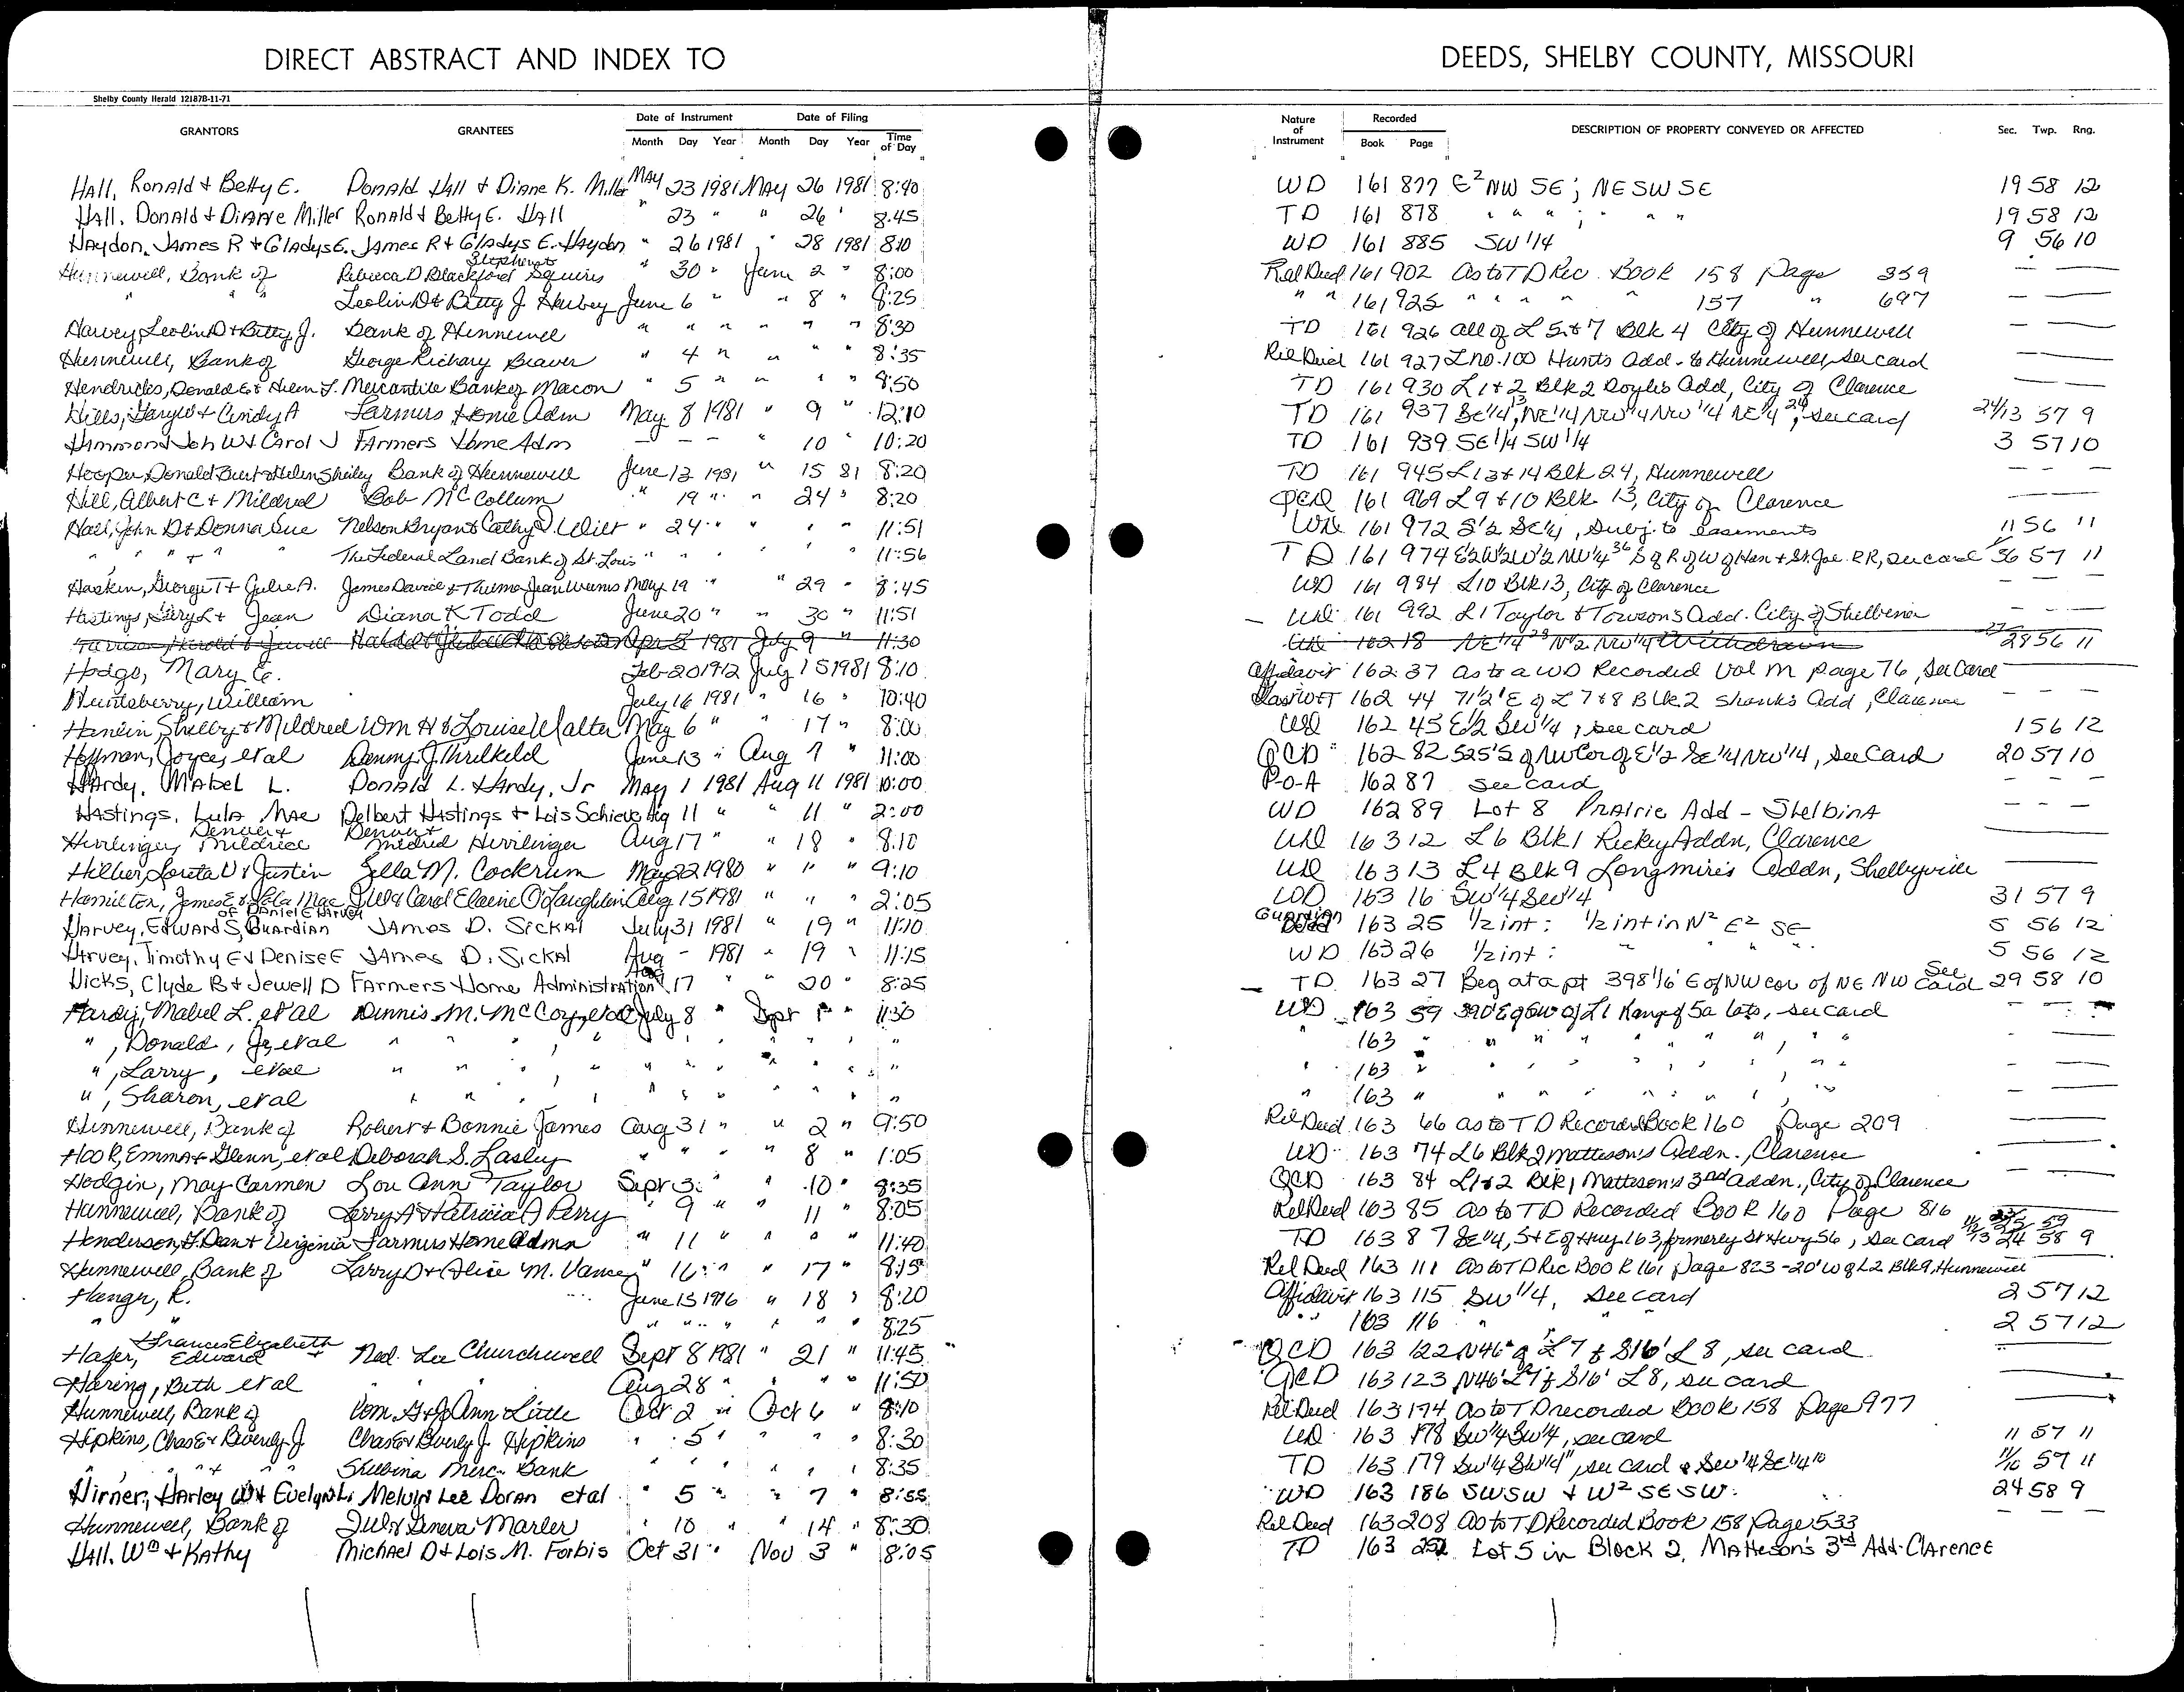 DIRECT ABSTRACT AND INDEX TO DEEDS, SHELBY COUNTY, MISSOURI
Shelby County Herald 12187B-11-71
GRANTORS GRANTEES Date of Instrument Month Day Year Date of Filing Month Day Year Time of Day Nature of Instrument Recorded Book Page DESCRIPTION OF PROPERTY CONVEYED OR AFFECTED Sec. Twp. Rng.
HAll, Ronald & Betty E. Donald Hall & Diane K. Miller MAY 23 1981 MAY 26 1981 8:40 WD 161 877 E² NW SE ; NE SW SE 19 58 12
Hall, Donald & Diane Miller Ronald & Betty E. Hall " 23 " " 26 " 8:45 TD 161 878 " " " ; " " " 19 58 12
Haydon, James R & Gladys E. James R & Gladys E. Haydon " 26 1981 " 28 1981 8:10 WD 161 885 SW 1/4 9 56 10
Hunnewell, Bank of Rebecca D Blackford Stephens Squires " 30 " June 2 " 8:00 Rel Deed 161 902 As to TD Rec. Book 158 Page 359 — —
" " " Leolin D & Betty J. Harvey June 6 " " 8 " 8:25 " " 161 925 " " " " " 157 " 697 — —
Harvey, Leolin D & Betty J. Bank of Hunnewell " " " " " " 8:30 TD 161 926 all of L 5 & 7 Blk 4 City of Hunnewell — —
Hunnewell, Bank of George Richary Beaver " 4 " " " " 8:35 Rel Deed 161 927 L no. 100 Hunts Add. to Hunnewell, see card
Hendricks, Donald E & Helen F. Mercantile Bank of Macon " 5 " " " " 8:50 TD 161 930 L 1 & 2 Blk 2 Doyle's Add, City of Clarence — —
Hills, Gary W & Cindy A Farmers Home Adm May 8 1981 " 9 " 12:10 TD 161 937 SE 1/4 13, NE 1/4 NW 1/4 NW 1/4 NE 1/4 24, see card 24/13 57 9
Hammond Joh W & Carol J FArmers Home Adm — — — " 10 " 10:20 TD 161 939 SE 1/4 SW 1/4 3 57 10
Hooper Donald Burt & Helen Shirley Bank of Hunnewell June 13 1981 " 15 81 8:20 TD 161 945 L 13 & 14 Blk 24, Hunnewell — — —
Hill, Albert C & Mildred Bob McCollum " 19 " " 24 " 8:20 QCD 161 969 L 9 & 10 Blk 13, City of Clarence
Hall, John D & Donna Sue Nelson Bryan & Cathy D. Wilt " 24 " " " " 11:51 WD 161 972 S 1/2 SE 1/4, Subj. to Easements 11 56 11
" " " + " The Federal Land Bank of St. Louis " " " " " " 11:56 TD 161 974 E 1/2 W 1/2 W 1/2 NW 1/4 36 S of R of W of Han & St. Joe RR, see card 36 57 11
Haskin, George T & Julie A. James David & Thelma Jean Weems May 19 " " 29 " 8:45 WD 161 984 L 10 Blk 13, City of Clarence — —
Hastings, Gary L & Jean Diana K Todd June 20 " " 30 " 11:51 WD 161 992 L 1 Taylor & Towson's Add. City of Shelbina — —
Harrison, Harold & Jewell 1981 July 9 " 11:30 WD 162 18 NE 1/4 28 N 1/2 NW 1/4 Withdrawn 28 56 11
Hodge, Mary E. Feb 20 1912 July 15 1981 8:10 Affidavit 162 37 as to a WD Recorded Vol M page 76, See Card
Huntsberry, William July 16 1981 " 16 " 10:40 162 44 71 1/2' E of L 7 & 8 Blk 2 Shanks Add, Clarence — — —
Hamlin Shelby & Mildred Wm H & Louise Walter May 6 " " 17 " 8:00 WD 162 45 E 1/2 SW 1/4, see card 1 56 12
Hoffman, Joyce, et al Denny J. Thrilkeld June 13 " Aug 7 " 11:00 QCD 162 82 525' S of NW Cor of E 1/2 SE 1/4 NW 1/4, see card 20 57 10
HArdy, MAbel L. Donald L. Hardy, Jr MAy 1 1981 Aug 11 1981 10:00 P-O-A 162 87 see card — — —
Hastings, Lula Mae Delbert Hastings & Lois Schieve Aug 11 " " 11 " 2:00 WD 162 89 Lot 8 PrAirie Add - ShelbinA — — —
Herrlinger, Denver & Mildred Denver & Mildred Herrlinger Aug 17 " " 18 " 8:10 WD 163 12 L 6 Blk 1 Rickey Addn, Clarence
Hilber, Loreta V & Justin Zella M. Cockrum May 22 1980 " " " 9:10 WD 163 13 L 4 Blk 9 Longmire's Addn, Shelbyville
Hamilton, James E & Lela Mae J W & Carol Elaine O'Laughlin Aug 15 1981 " " " 2:05 WD 163 16 SW 1/4 SW 1/4 31 57 9
Harvey, Edward S, Guardian of Daniel E Harvey James D. Sickal July 31 1981 " 19 " 11:10 Guardian Deed 163 25 1/2 int : 1/2 int in N² E² SE 5 56 12
Harvey, Timothy E & Denise E James D. Sickal Aug - 1981 " 19 " 11:15 WD 163 26 1/2 int : " " " 5 56 12
Hicks, Clyde B & Jewell D FArmers Home Administration Aug 17 " " 20 " 8:25 TD 163 27 Beg at a pt 398 1/6' E of NW cor of NE NW See Card 29 58 10
Hardy, Mabel L. et al Dennis M. McCoy, et al July 8 " Sept 1 " 11:30 WD 163 59 390' E of SW of L 1 Range of 5a lots, see card
" , Donald, Jr, et al " " " " " " " " " " 163 " " " " " " " " "
" , Larry, et al " " " " " " " " " " 163 " " " " " " " "
" , Sharon, et al " " " " " " " " " " 163 " " " " " " " "
Hunnewell, Bank of Robert & Bonnie James Aug 31 " " 2 " 9:50 Rel Deed 163 66 as to TD Recorded Book 160 Page 209
HOOR, Emma & Glenn, et al Deborah S. Lasley " " " " 8 " 1:05 WD 163 74 L 6 Blk 2 Matteson's Addn., Clarence
Hodgin, May Carmen Lou Ann Taylor Sept 3 " " 10 " 8:35 QCD 163 84 L 1 & 2 Blk 1 Matteson's 3rd addn., City of Clarence
Hunnewell, Bank of Larry A & Patricia A Perry " 9 " " 11 " 8:05 Rel Deed 163 85 as to TD Recorded BooK 160 Page 816
Henderson, F. Dean & Virginia Farmers Home Admn " 11 " " " " 11:40 TD 163 87 SE 1/4, S & E of Hwy 163, formerly St Hwy 56, see card 24 58 9
Hunnewell, Bank of Larry D & Alice M. Vance " 16 " " 17 " 8:15 Rel Deed 163 111 As to TD Rec BooK 161 page 823 - 20' W of L 2 Blk 9, Hunnewell
Hanger, R. June 15 1976 " 18 " 8:20 Affidavit 163 115 SW 1/4, see card 2 57 12
" " " " " " " 8:25 " 163 116 " " 2 57 12
Hafer, Frances Elizabeth & Edward Ned. Lee Churchwell Sept 8 1981 " 21 " 11:45 QCD 163 122 N 46' of L 7 & S 16' L 8, see card
Haring, Beth et al " " " Aug 28 " " " " 11:50 QCD 163 123 N 46' L 7 & S 16' L 8, see card
Hunnewell, Bank of Wm. G & Jo Ann Little Oct 2 " Oct 6 " 8:10 Rel. Deed 163 174 As to TD recorded Book 158 Page 977
Hipkins, Chas E & Beverly J. Chas E & Beverly J. Hipkins " 5 " " " " 8:30 WD 163 178 SW 1/4 SW 1/4, see card 11 57 11
" " " + " " Shelbina Merc. Bank " " " " " " 8:35 TD 163 179 SW 1/4 SW 1/4 11, see card & SE 1/4 SE 1/4 10 11/10 57 11
Hirner, Harley W & Evelyn L. Melvin Lee Doran et al " 5 " " 7 " 8:55 WD 163 186 SW SW & W² SE SW. 24 58 9
Hunnewell, Bank of J W & Geneva Marler " 10 " " 14 " 8:30 Rel Deed 163 208 As to TD Recorded Book 158 Page 533 — —
Hall, Wm & Kathy Michael D & Lois M. Forbis Oct 31 " Nov 3 " 8:05 TD 163 252 Lot 5 in Block 2, Matteson's 3rd Add. Clarence